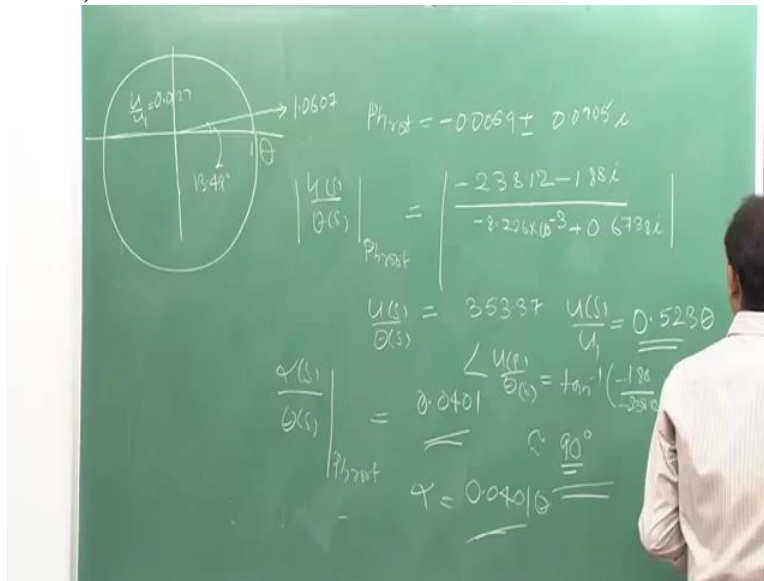 u/u₁ = 0.027
1.0607
1 θ
13.49°
Ph root = -0.0069 ± 0.0905 i
|u(s)/θ(s)| Ph root = |(-23812 - 188i)/(-8.226×10⁻³ + 0.6738i)|
u(s)/θ(s) = 35337 u(s)/U₁ = 0.523θ
∠ u(s)/θ(s) = tan⁻¹(-188/-23812
≈ 90°
α(s)/θ(s) | Ph root = 0.0401
α = 0.0401θ